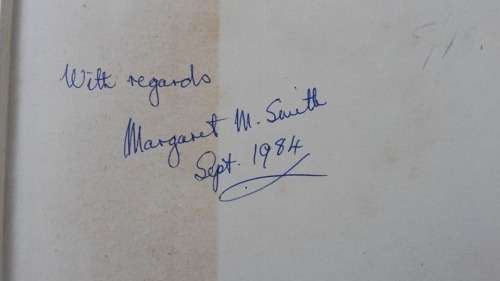 With regards
Margaret M. Smith
Sept. 1984